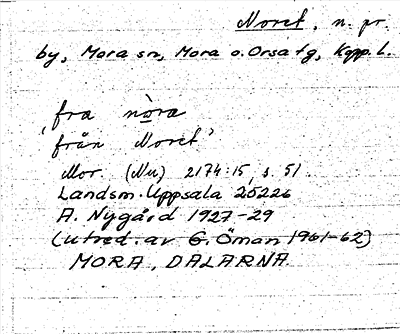 Noret, n. pr.
by, Mora sn, Mora o. Orsa tg, Kopp. l.
fra nòra
'från Noret'
Mor. (Nu) 2174:15, s. 51.
Landsm. Uppsala 25226
A. Nygård 1927-29
(utred. av G. Öman 1961-62)
MORA, DALARNA